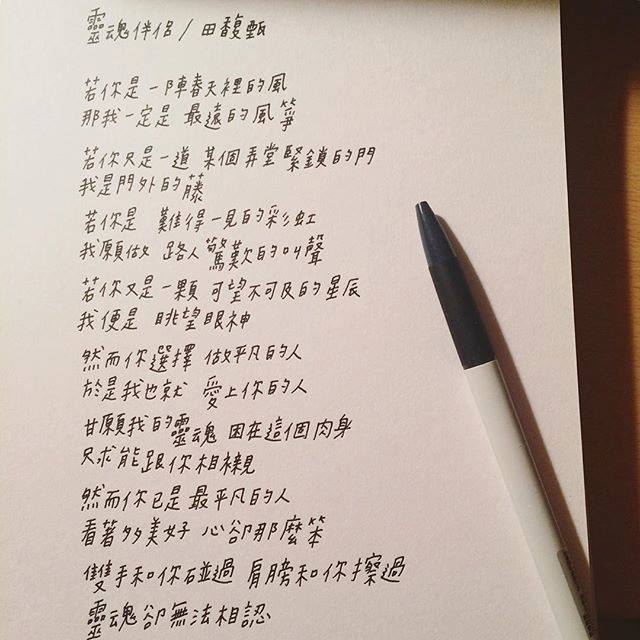 靈魂伴侶 / 田馥甄
若你是一陣春天裡的風
那我一定是 最遠的風箏
若你只是一道 某個弄堂緊鎖的門
我是門外的藤
若你是 難得一見的彩虹
我願做 路人驚歎的叫聲
若你又是一顆 可望不可及的星辰
我便是 眺望眼神
然而你選擇 做平凡的人
於是我也就 愛上你的人
甘願我的靈魂 困在這個肉身
只求能跟你相襯
然而你已是 最平凡的人
看著多美好 心卻那麼笨
雙手和你碰過 肩膀和你擦過
靈魂卻無法相認